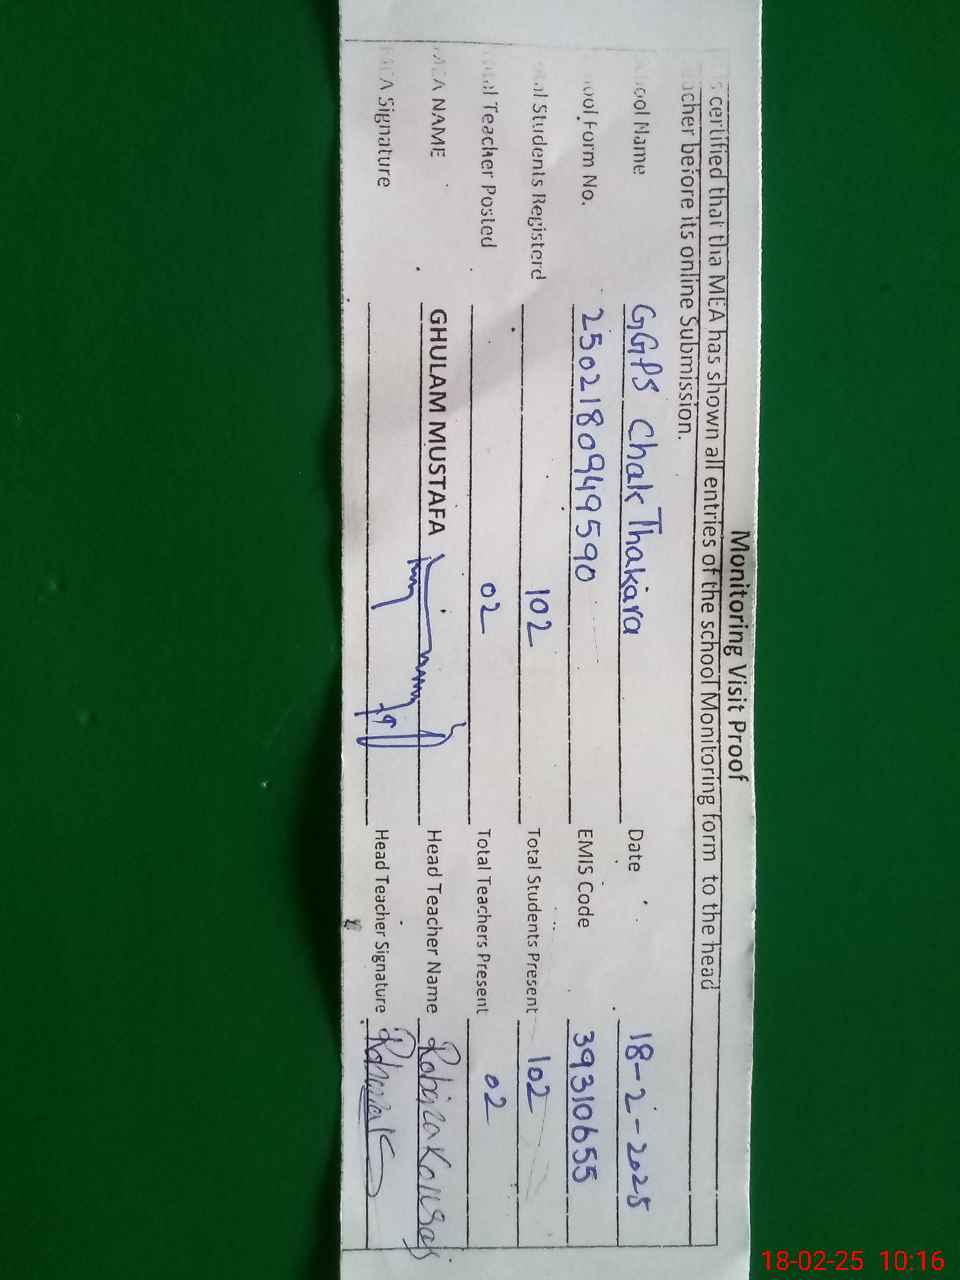 Monitoring Visit Proof
s certified that tha MEA has shown all entries of the school Monitoring form to the head
acher before its online Submission.
ool Name GGPS Chak Thakara Date 18-2-2025
ool Form No. 250218094959 0 EMIS Code 39310655
tal Students Registerd 102 Total Students Present 102
otal Teacher Posted 02 Total Teachers Present 02
MEA NAME GHULAM MUSTAFA Head Teacher Name Robina Kousar
MEA Signature Head Teacher Signature
18-02-25 10:16